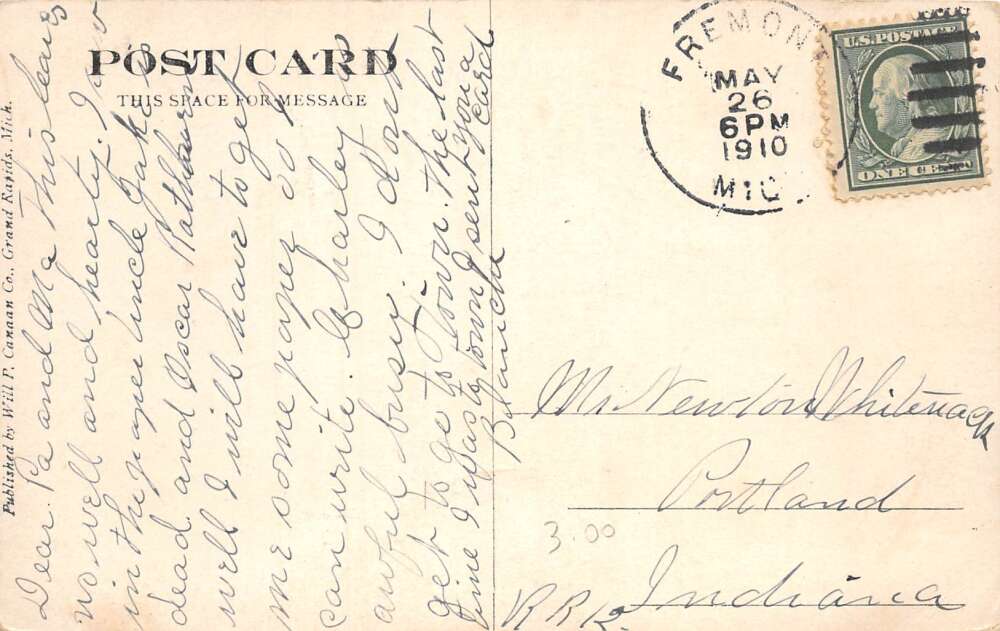 POST CARD
THIS SPACE FOR MESSAGE
Published by Will P. Canaan Co., Grand Rapids, Mich.
Dear Pa and Ma This leaves
us well and hearty. I saw
in the paper Uncle Jake
dead and Oscar
well I will have to get
me some paper so I
can write. Charley is
awful busy. I dont
get to go to Town. The last
time I was to town I sent you a
card
Blanche
FREMONT
MAY
26
6PM
1910
MIC
U.S. POSTAGE
ONE CENT
Mr Newton Whitenack
Portland
Indiana
R R 12.
3.00